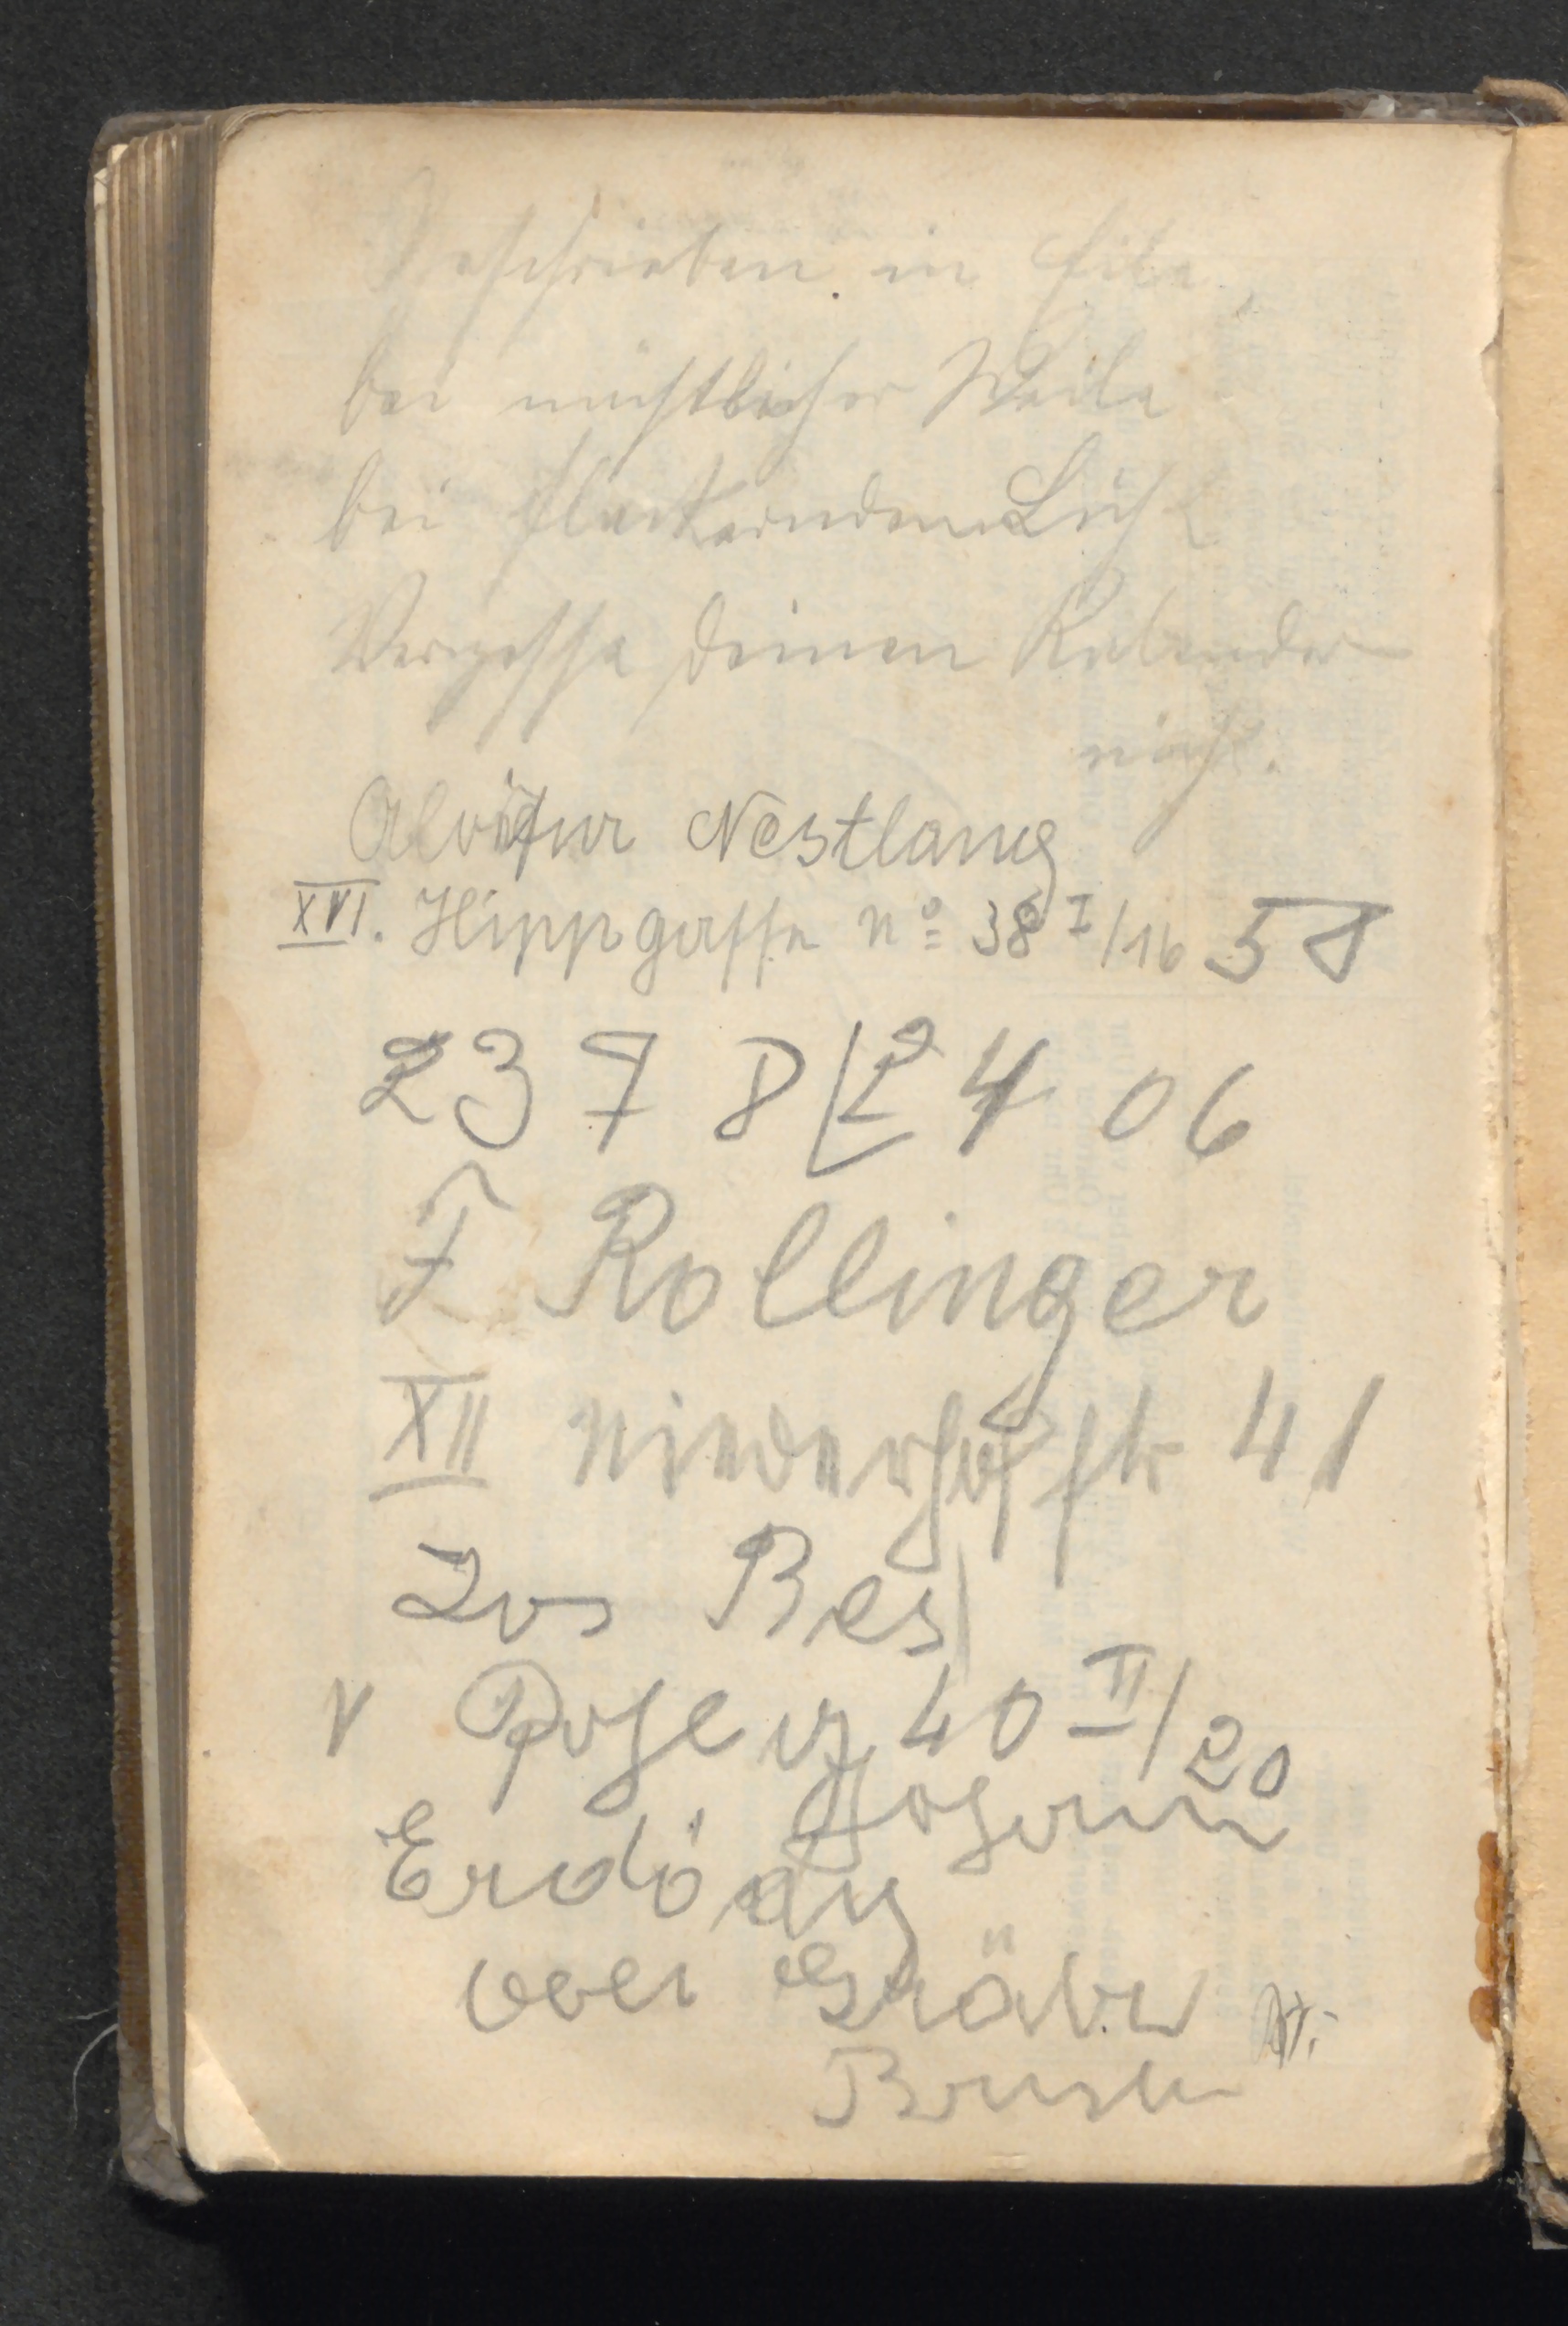 Geschrieben in Eile,
bei nächtlicher Weile
bei flackerndem Licht
Vergesse deinen Kalender
nicht.
Nestlang
XVI. Hippgasse No 38 I/16 58
2378 24 06
F Rollinger
XII Niederhofstr 41
Jos Bes
V 40 II/20
Johann
Erdödy